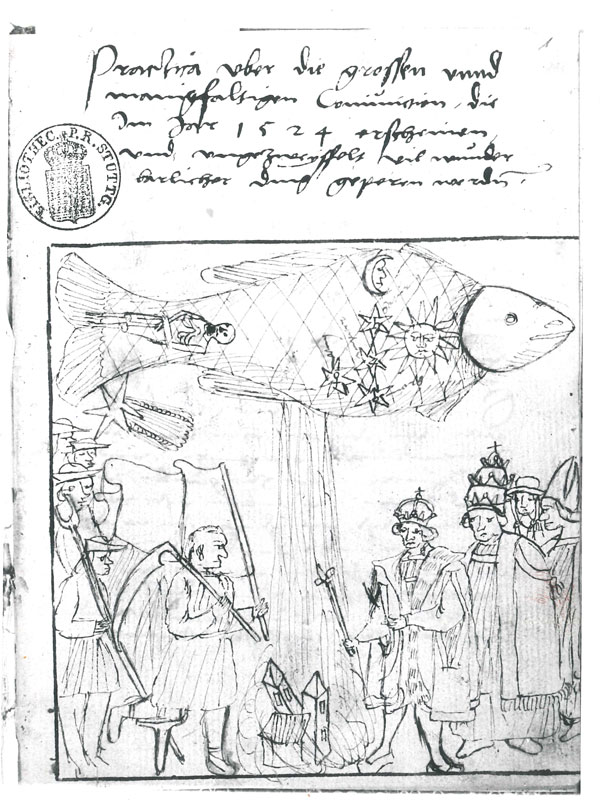 Practica vber die grossen vnnd
manigfaltigen Coniunction, die
Im Jar 1 5 2 4 erscheinen,
vnd vngezweyffelt vil wunder
barlicher ding geperen werdn.
BIBLIOTHEC. P. R. STUTTG.